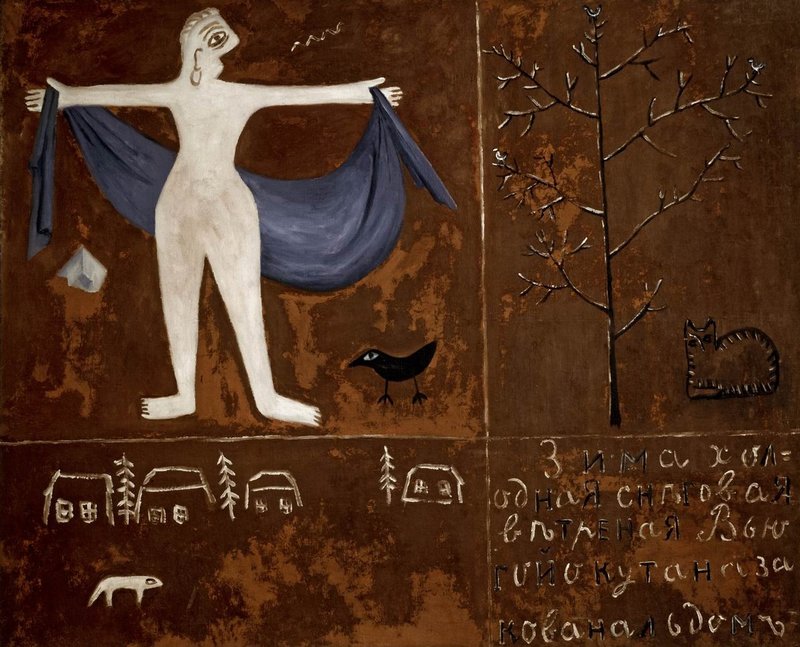 Зима хол=
одная снѣговая
вѣтреная Вью
гой окутана за
кована льдомъ